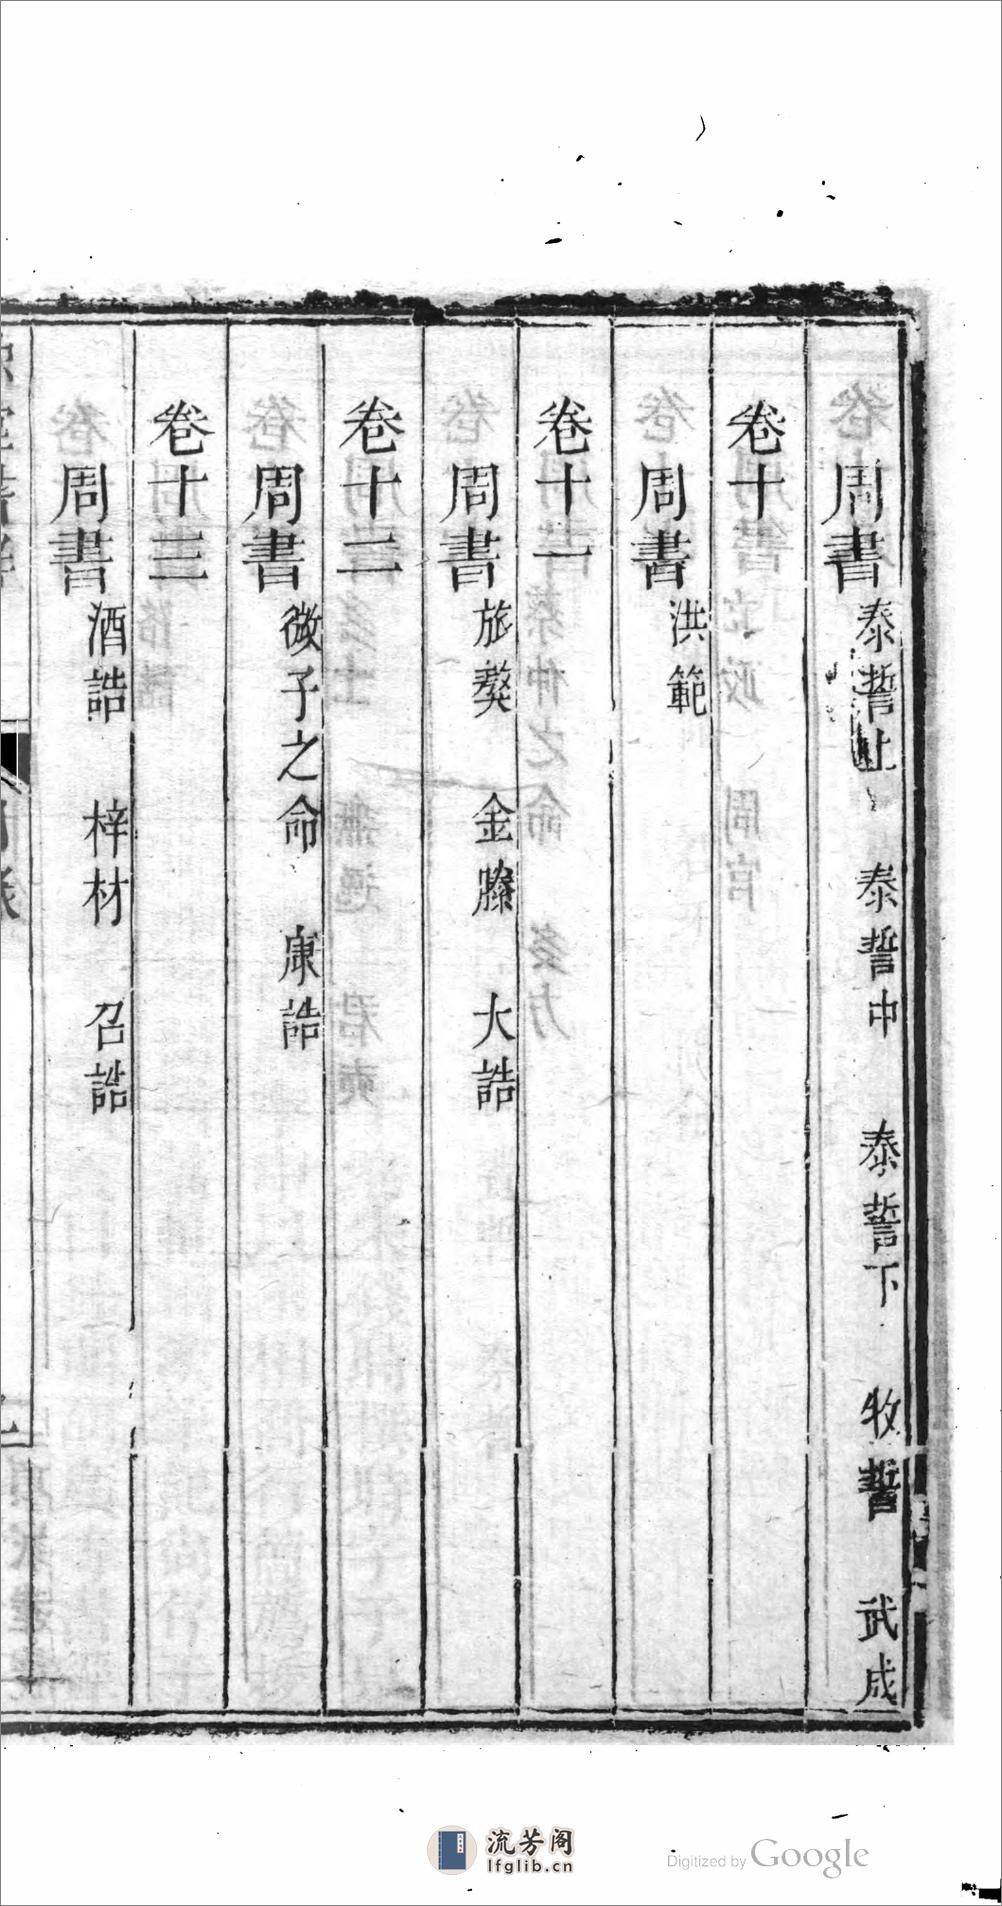 周書 泰誓上 泰誓中 泰誓下 牧誓 武成
卷十
周書 洪範
卷十一
周書 旅獒 金縢 大誥
卷十二
周書 微子之命 康誥
卷十三
周書 酒誥 梓材 召誥
流芳阁
lfglib.cn
Digitized by Google